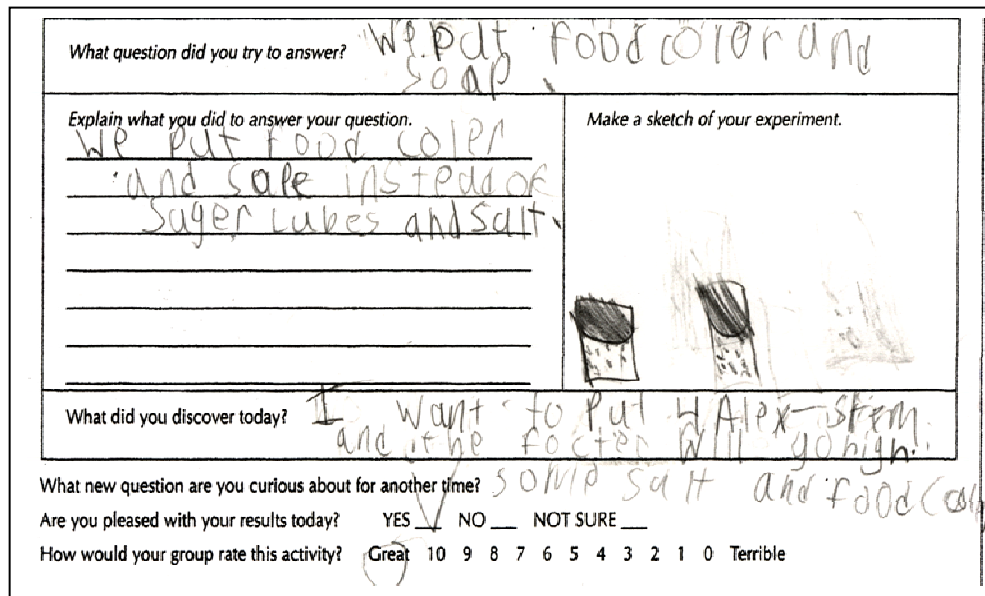 What question did you try to answer? We put food color and
soap.
Explain what you did to answer your question.
We put food coler
and sope instead of
Suger Lubes and salt.
Make a sketch of your experiment.
What did you discover today? I want to put 4 Alex-
and the will go high.
What new question are you curious about for another time? some salt and food Colo
Are you pleased with your results today? YES NO NOT SURE
How would your group rate this activity? Great 10 9 8 7 6 5 4 3 2 1 0 Terrible